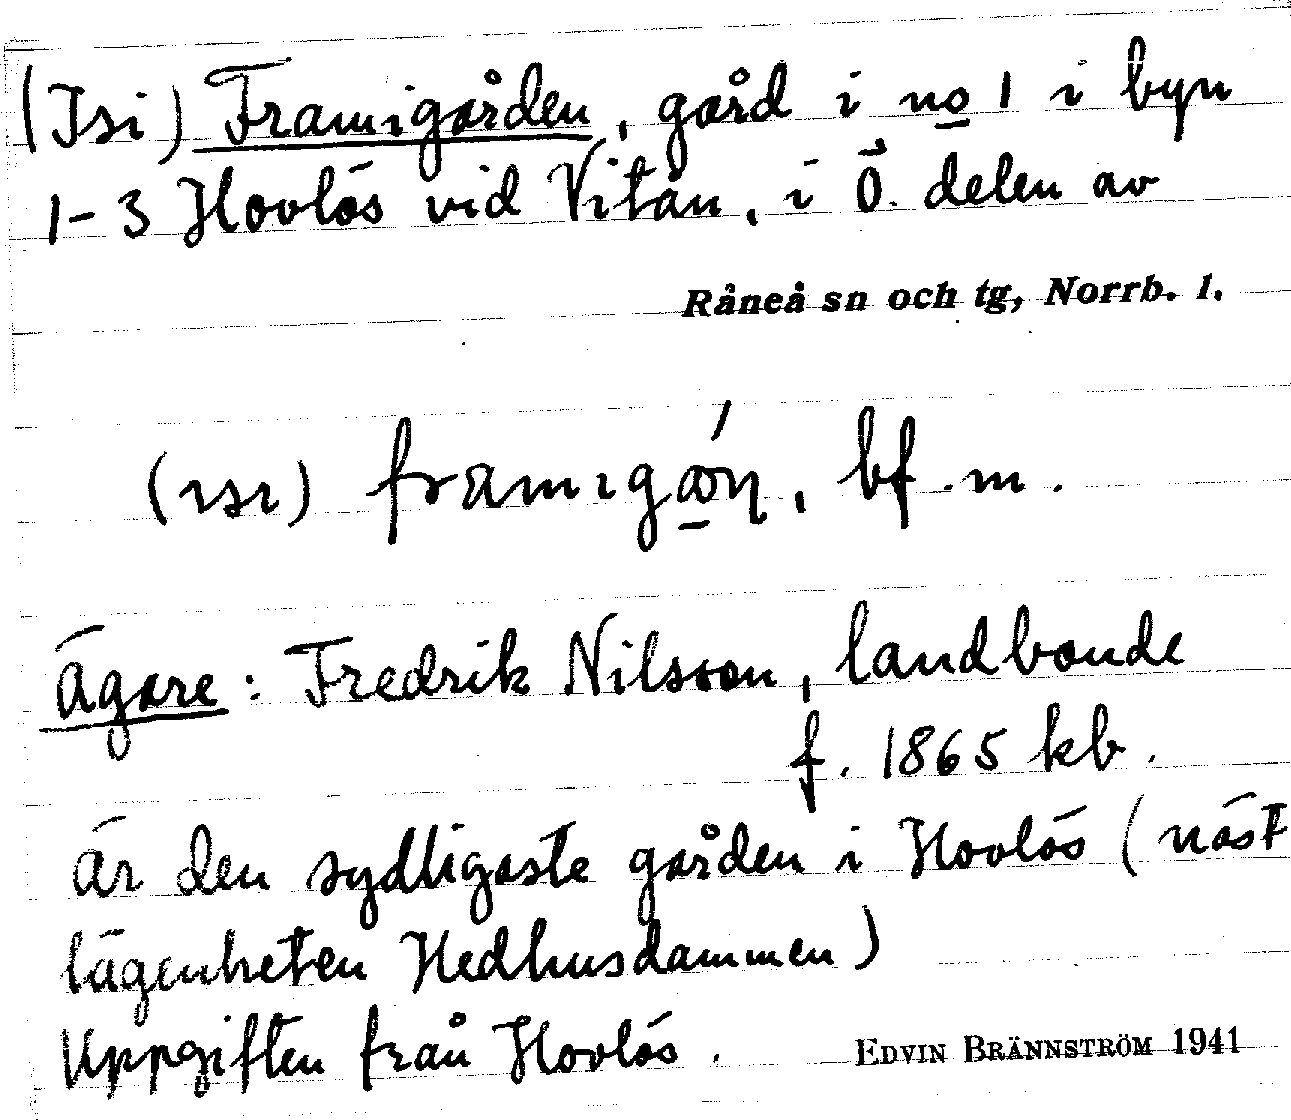 (Isi) Framigården, gård i no 1 i byn
1-3 Hovlös vid Vitån, i Ö. delen av
Råneå sn och tg, Norrb. l.
(ɪsɪ) framɪgɷ́ɳ, bf. m.
Ägare: Fredrik Nilsson, landbonde
f. 1865 kb.
Är den sydligaste gården i Hovlös (näst
lägenheten Hedhusdammen)
Uppgiften från Hovlös.
EDVIN BRÄNNSTRÖM 1941